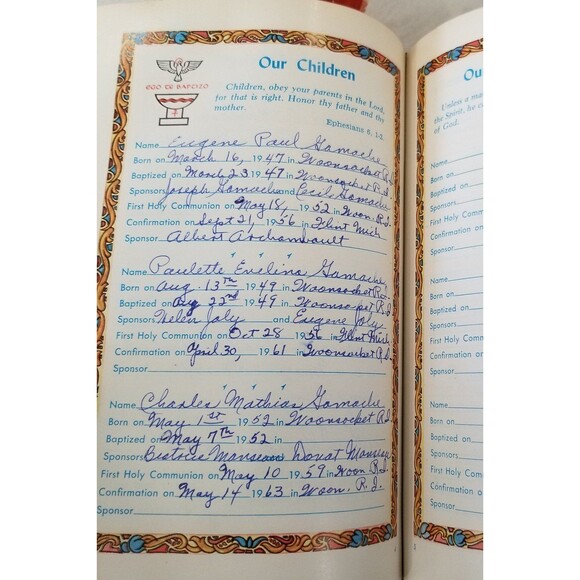 Our Children
EGO TE BAPTIZO
Children, obey your parents in the Lord,
for that is right. Honor thy father and thy
mother.
Ephesians 6, 1-2.
Name Eugene Paul Gamache
Born on March 16, 1947 in Woonsocket R.I.
Baptized on March 23 1947 in Woonsocket R.I.
Sponsors Joseph Gamache and Cecil Gamache
First Holy Communion on May 18, 1952 in Woon. R.I.
Confirmation on Sept 21, 1956 in Flint Mich
Sponsor Albert Archambault
Name Paulette Evelina Gamache
Born on Aug. 13th 1949 in Woonsocket R.I.
Baptized on Aug 22nd 1949 in Woonsocket R.I.
Sponsors Helen Joly and Eugene Joly
First Holy Communion on Oct 28 1956 in Flint Mich
Confirmation on April 30, 1961 in Woonsocket R.I.
Sponsor
Name Charles Mathias Gamache
Born on May 1st 1952 in Woonsocket R.I.
Baptized on May 7th 1952 in
Sponsors Donat
First Holy Communion on May 10 1959 in Woon R.I.
Confirmation on May 14 1963 in Woon. R.I.
Sponsor
Ou
Unless a ma
the Spirit, he c
of God.
Name
Born on
Baptized on
Sponsors
First Holy Com
Confirmation o
Sponsor
Name
Born on
Baptized on
Sponsors
First Holy Co
Confirmation
Sponsor
Name
Born on
Baptized o
Sponsors
First Holy
Confirmati
Sponsor
2